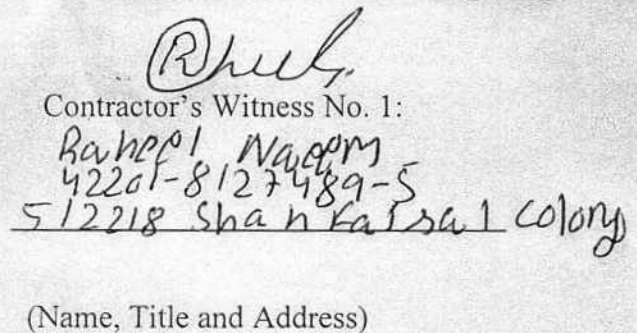 Contractor's Witness No. 1:
Raheel Naeem
42201-8127489-5
5/2218 Shah Faisal Colony
(Name, Title and Address)